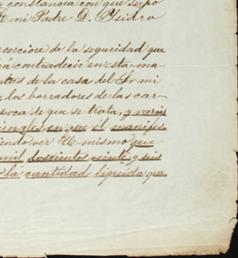 constancia con que supo
mi Padre D. Ysidro
cerciore de la seguridad que
rá contradecir en esta ma-
ntos de la casa del Sr. mi
los borradores de las car-
poca de que se trata, y varios
en que él
endo ver V. mismo que
mil doscientos veinte y seis
la cantidad liquida que